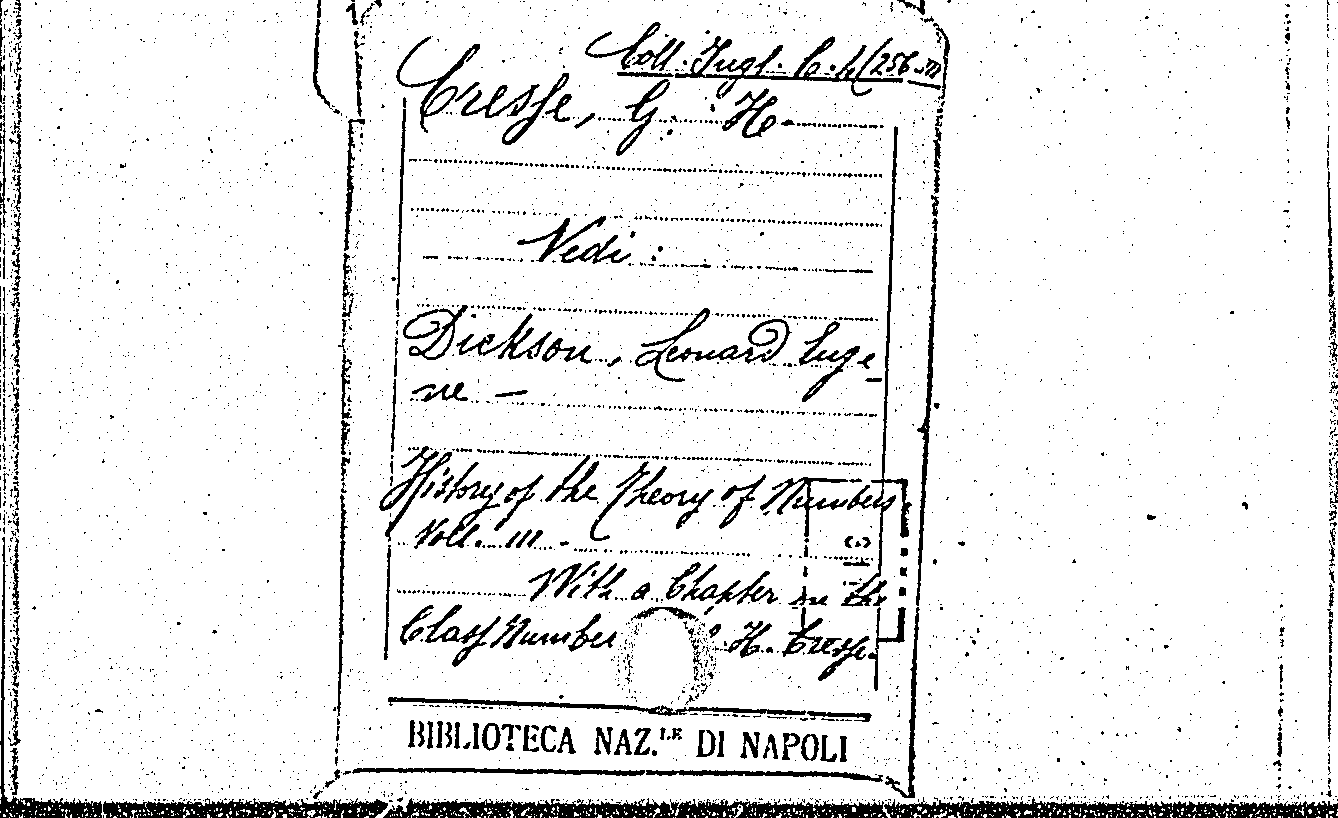 Coll. Ingl. C. 4/256.m
Cresse, G. H.
Vedi :
Dickson, Leonard Euge-
ne —
History of the Theory of Numbers
Voll. III -
With a Chapter on the
Class Number H. Cresse.
BIBLIOTECA NAZ.LE DI NAPOLI